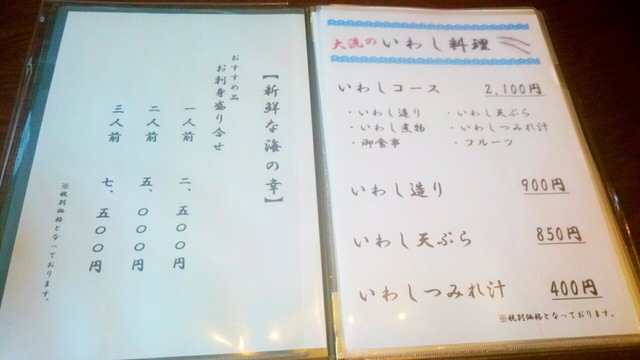 【新鮮な海の幸】
おすすめ品
お刺身盛り合せ
一人前 二、五〇〇円
二人前 五、〇〇〇円
三人前 七、五〇〇円
※税別価格となっております。
大洗のいわし料理
いわしコース 2,100円
・いわし造り ・いわし天ぷら
・いわし煮物 ・いわしつみれ汁
・御食事 ・フルーツ
いわし造り 900円
いわし天ぷら 850円
いわしつみれ汁 400円
※税別価格となっております。